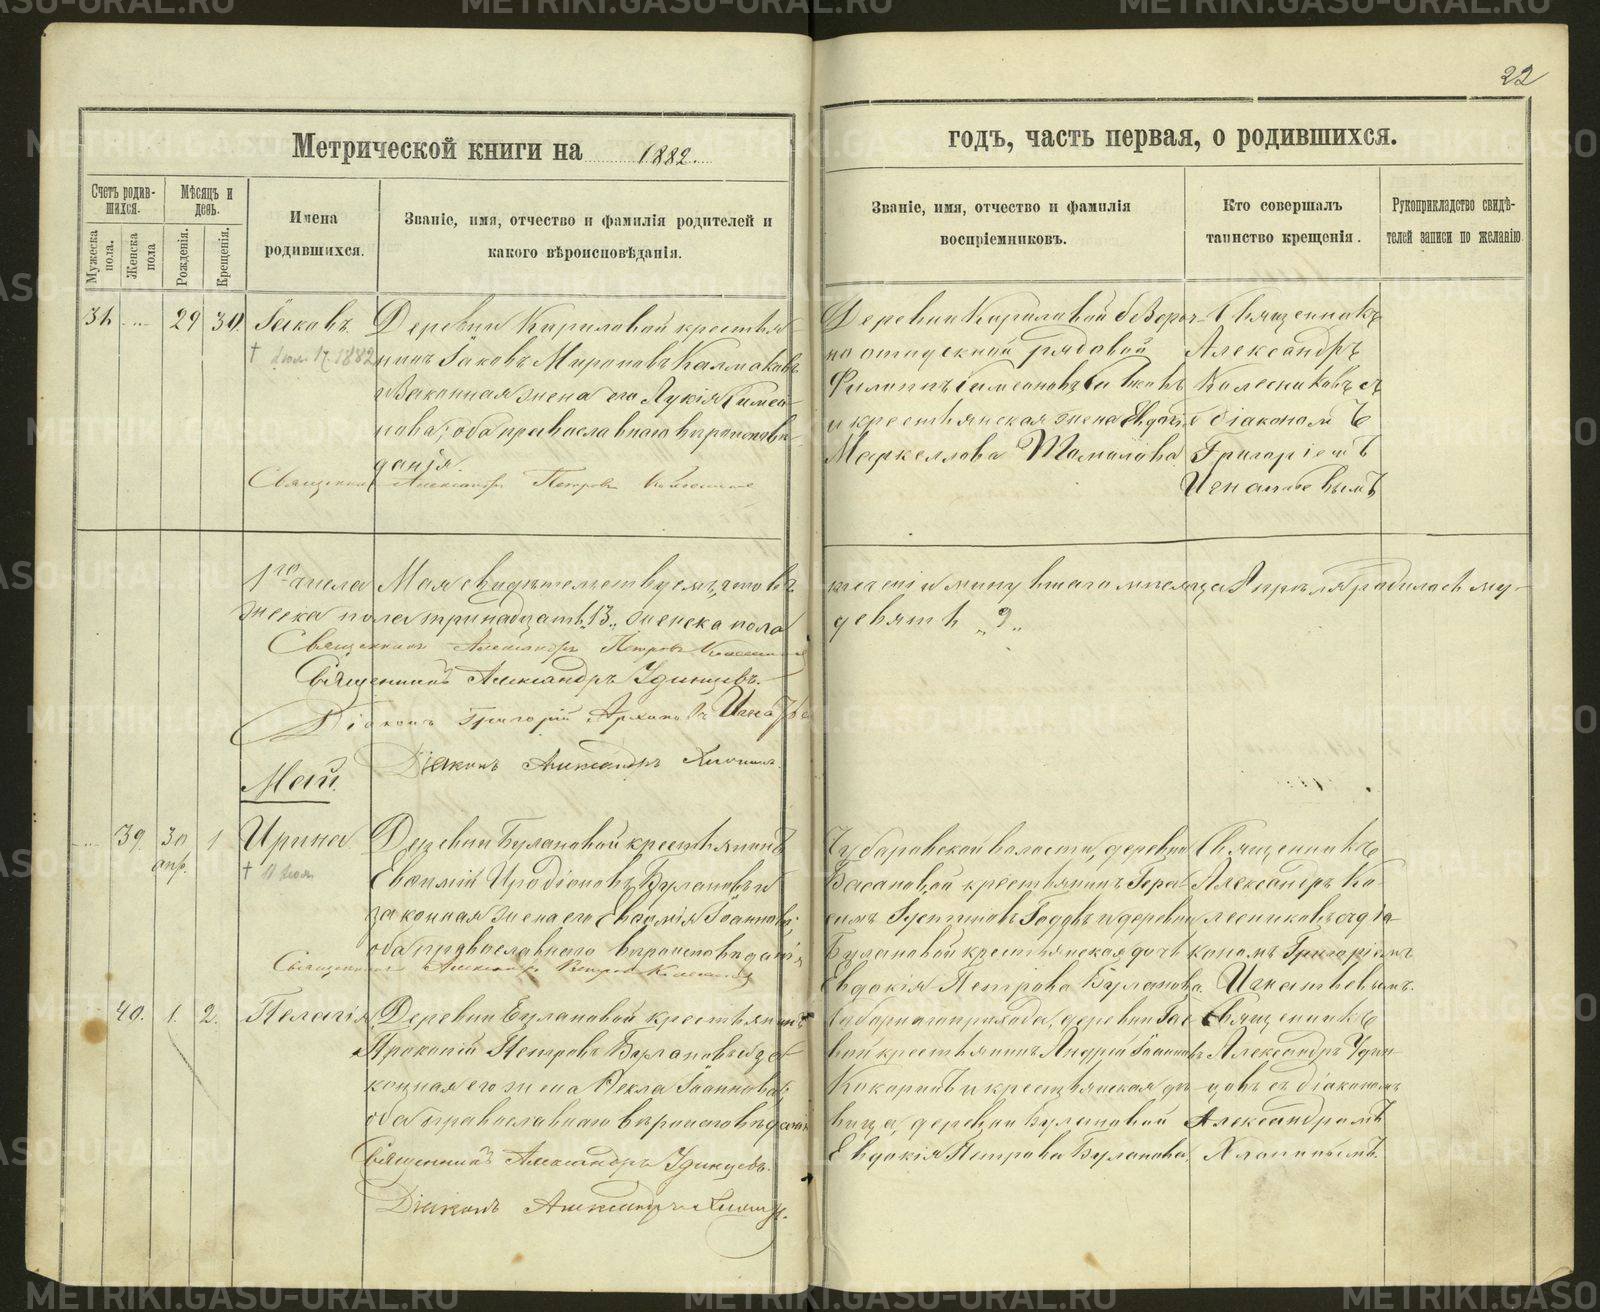 22
Метрической книги на 1882.
годъ, часть первая, о родившихся.
Счетъ родив-
шихся.
Мѣсяцъ и
день.
Имена
родившихся.
Званіе, имя, отчество и фамилія родителей и
какого вѣроисповѣданія.
Мужеска
пола.
Женска
пола
Рожденія.
Крещенія.
Званіе, имя, отчество и фамилія
воспріемниковъ.
Кто совершалъ
таинство крещенія.
Рукоприкладство свидѣ-
телей записи по желанію
29 30 Іаковъ Деревни Кириловой крестья-
нинъ Іаковъ Мироновъ Калмаковъ
и законная жена его Лукія Симео-
нова; оба православнаго вѣроисповѣ-
данія.
Священникъ Александръ Петровъ
Деревни Кириловой
отпускной рядовой
Филиппъ Симеоновъ
и крестьянская жена Евдокія
Маркеллова
Священникъ
Александръ
Колесниковъ съ
діакономъ
Григоріемъ
Игнатьевымъ
1го числа Мая свидѣтельствуемъ, что въ
теченіи минувшаго мѣсяца Апрѣля родилось му-
жеска пола тринадцать „13„ женска пола
девять „9„
Священникъ Александръ Петровъ
Священникъ Александръ Удинцевъ.
Діаконъ Григорій
Діаконъ Александръ
Май.
39. 30 апр. 1 Ирина Деревни Булановой крестьянинъ
Евѳимій Иродіоновъ Булановъ и
законная жена его Евѳимія Іоаннова;
оба православнаго вѣроисповѣданія
Священникъ Александръ Петровъ
Чубаровской волости, деревни
Басановой крестьянинъ Гера-
симъ Іустиновъ и деревни
Булановой крестьянская дочь
Евдокія Петрова Буланова.
Священникъ
Александръ Ко-
лесниковъ съ діа-
кономъ Григоріемъ
Игнатьевымъ.
40. 1. 2. Пелагія Деревни Булановой крестьянинъ
Прокопій Петровъ Булановъ и за-
конная его жена Ѳекла Іоаннова;
оба православнаго вѣроисповѣданія
Священникъ Александръ Удинцевъ.
Діаконъ Александръ
прихода, деревни
крестьянинъ Андрей Іоанновъ
Кокаринъ и крестьянская дѣ-
вица, деревни Булановой
Евдокія Петрова Буланова.
Священникъ
Александръ Удин-
цовъ съ діакономъ
Александромъ
Хлопинымъ.
METRIKI.GASO-URAL.RU